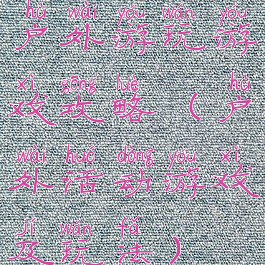 hù wài yóu wán yóu
户外游玩游
xì gōng lüè hù
戏攻略（户
wài huó dòng yóu xì
外活动游戏
jí wán fǎ
及玩法）